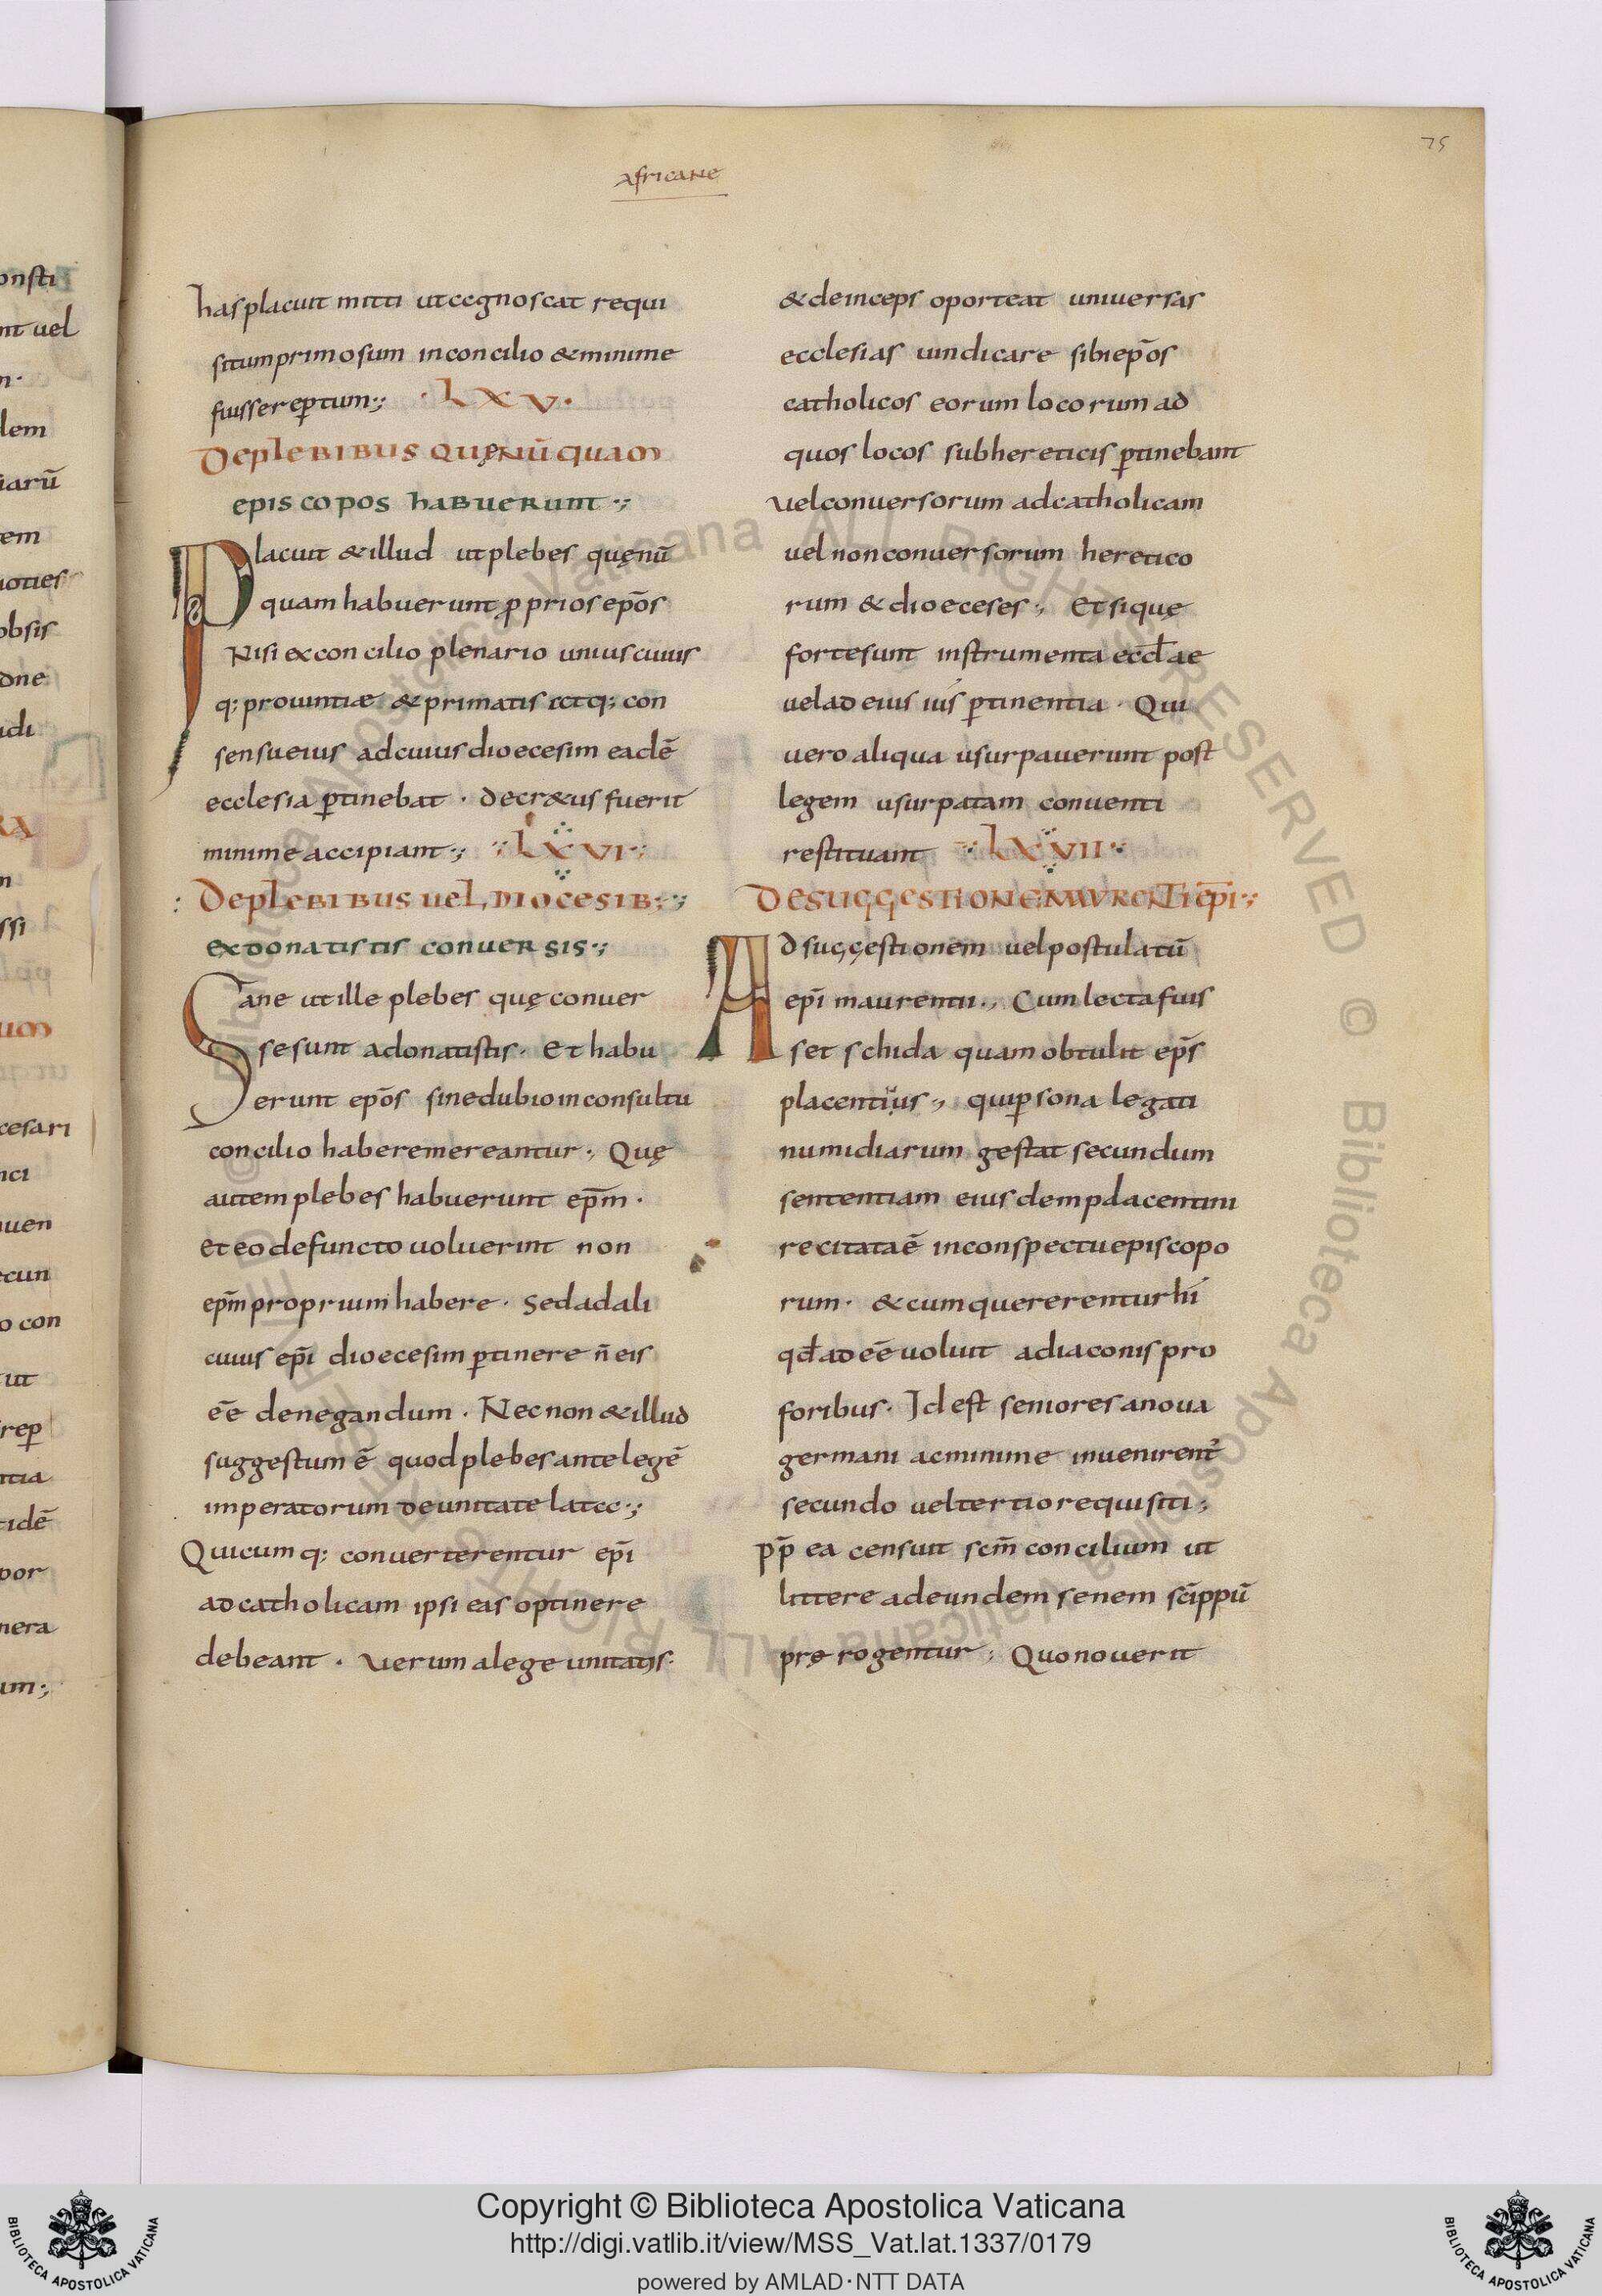 75
Africane
has placuit mitti ut cognoscat requi
situm primo sum in concilio & minime
fuisse reꝑtum·;
·LXV·
De plebibus quę nū quam
episcopos habuerunt·;
Placuit & illud ut plebes quę nū
quam habuerunt ꝓprios ep̄os
Nisi ex concilio plenario uniuscuius
q; prouintiæ & primatis atq; con
sensu eius ad cuius dioecesim eadē
ecclesia ꝑtinebat · decr&us fuerit
minime accipiant·;
LXVI
De plebibus uel diocesib;·;
ex donatistis conuersis·;
Sane ut ille plebes quę conuer
se sunt a donatistis · Et habu
erunt ep̄os sine dubio inconsultu
concilio habere mereantur·; Quę
autem plebes habuerunt ep̄m ·
Et eo defuncto uoluerint non
ep̄m proprium habere · sed ad ali
cuius ep̄i dioecesim ꝑtinere n̄ eis
eē denegandum · Nec non & illud
suggestum ē quod plebes ante legē
imperatorum de unitate latec·;
Quicumq; conuerterentur ep̄i
ad catholicam ipsi eas optinere
debeant · Uerum a lege unitatis
& deinceps oporteat uniuersas
ecclesias uindicare sibi ep̄os
catholicos eorum locorum ad
quos locos sub hereticis ꝑtinebant
uel conuersorum ad catholicam
uel non conuersorum heretico
rum & dioeceses·; Et si quę
forte sunt instrumenta eccl̄ae
uel ad eius ius ꝑtinentia · Qui
uero aliqua usurpauerunt post
legem usurpatam conuenti
restituant
LXVII
De suggestione maurenti ep̄i·;
Ad suggestionem uel postulatū
ep̄i maurentii·, Cum lecta fuis
set schida quam obtulit ep̄s
placentius·, qui ꝑsona legati
numidiarum gestat secundum
sententiam eiusdem pdacentini
recitata ē in conspectu episcopo
rum · & cum quererentur hi
qd̄ ad eē uoluit a diaconis pro
foribus · Id est seniores a noua
germani ac minime inuenirent̄
secundo uel tertio requisiti·,
pp̄ ea censuit scm̄ concilium ut
littere ad eundem senem sc̄ippū
prę rogentur·, Quo nouerit
Copyright © Biblioteca Apostolica Vaticana
http://digi.vatlib.it/view/MSS_Vat.lat.1337/0179
powered by AMLAD·NTT DATA
BIBLIOTECA APOSTOLICA VATICANA
BIBLIOTECA APOSTOLICA VATICANA